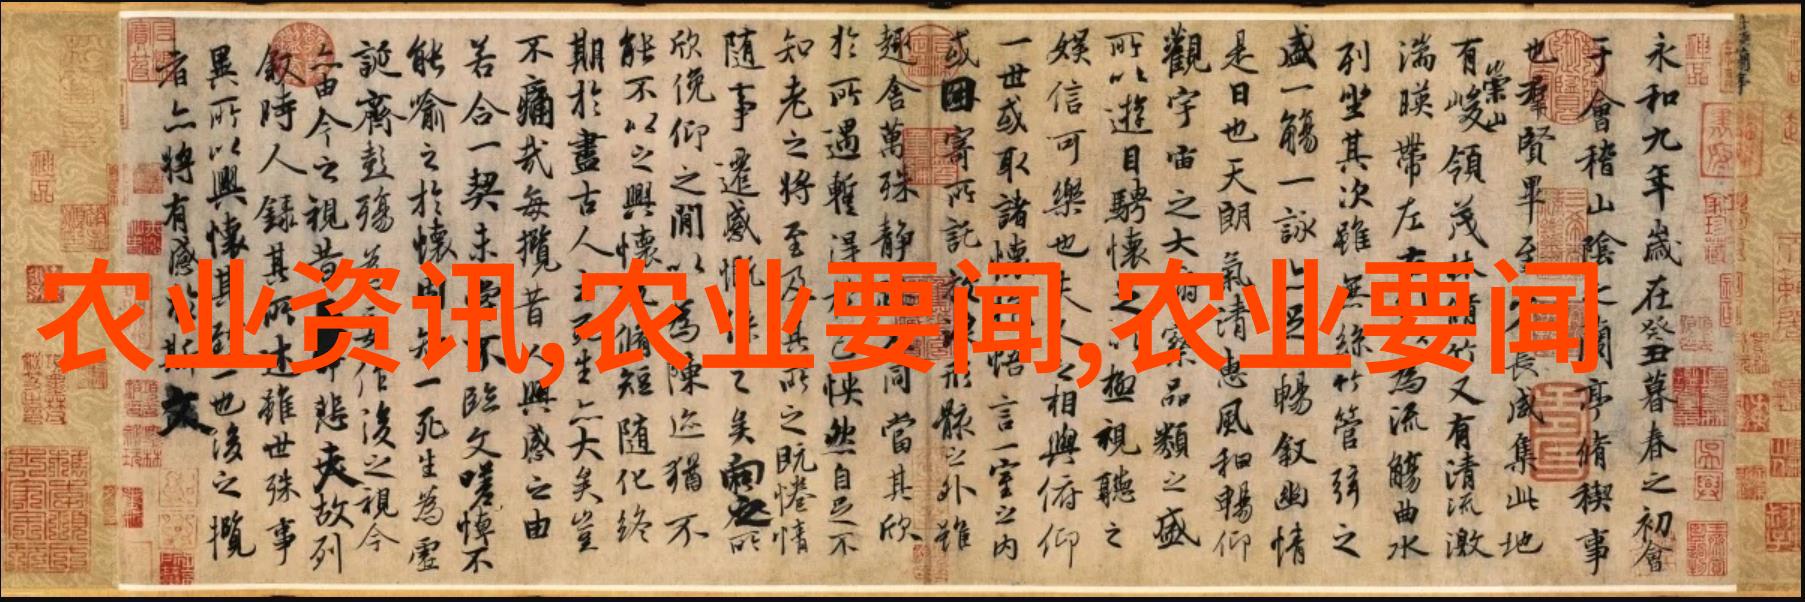 农业资讯,农业要闻,农业要闻
永和九年歲在癸丑暮春之初會
于會稽山陰之蘭亭脩稧事
也羣賢畢至少長咸集此地
有崇山峻領茂林脩竹又有清流激
湍暎帶左右為流觴曲水
列坐其次雖無絲竹管弦之
盛一觴一詠亦足暢叙幽情
是日也天朗氣清惠風和暢仰
觀宇宙之大察品類之盛
所以遊目騁懷足以極視聽之
娛信可樂也夫人之相與俯仰
一世或取諸懷悟言一室之內
或因寄所託形骸之外雖
趣舍萬殊靜同當其欣
於所遇暫得己怏然自足不
知老之將至及其所之既惓情
隨事遷感慨之矣向之所
欣俛仰之閒以為陳迹猶不
能不以之興懷脩短隨化終
期於盡古人死生亦大矣豈
不痛哉每攬昔人興感之由
若合一契未嘗不臨文嗟悼不
能喻之於懷固知一死生為虛
誕齊彭殤為作後之視今
亦由今之視昔悲夫故列
叙時人錄其所述雖世殊事
異所以興懷其一也後之攬
者亦將有感於斯文